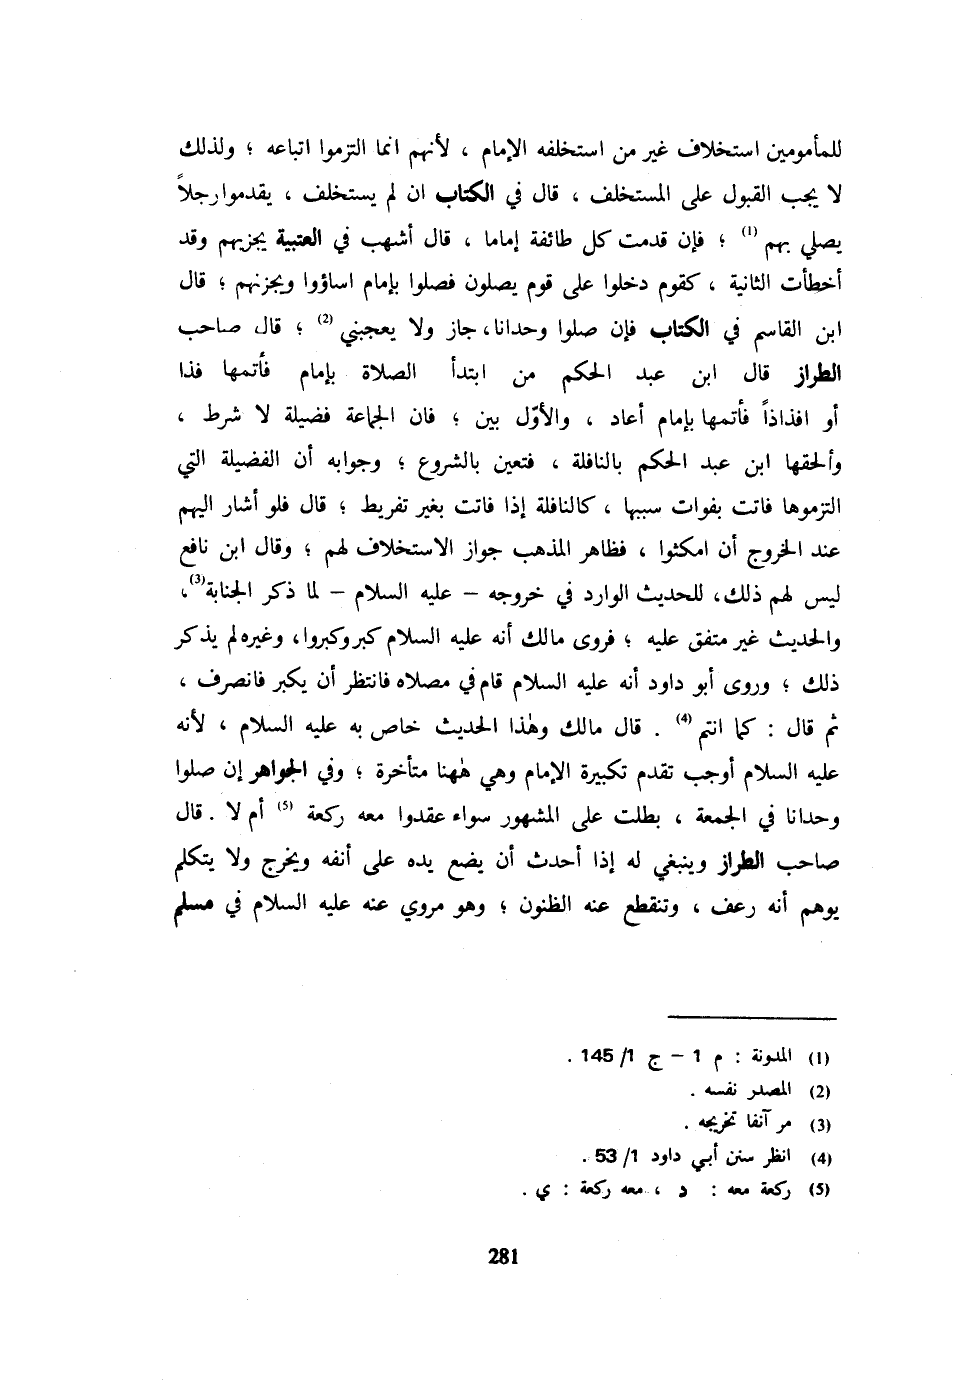 للمأمومين استخلاف غير من استخلفه الإمام ، لأنهم انما التزموا اتباعه ؛ ولذلك
لا يجب القبول على المستخلف ، قال في الكتاب ان لم يستخلف ، يقدموا رجلاً
يصلي بهم (1) ؛ فإن قدمت كل طائفة إماما ، قال أشهب في العتبية يجزيهم وقد
أخطأت الثانية ، كقوم دخلوا على قوم يصلون فصلوا بإمام اساؤوا ويجزئهم ؛ قال
ابن القاسم في الكتاب فإن صلوا وحدانا ، جاز ولا يعجبني (2) ؛ قال صاحب
الطراز قال ابن عبد الحكم من ابتدأ الصلاة بإمام فأتمها فذا
أو افذاذاً فأتمها بإمام أعاد ، والأوّل بين ؛ فان الجماعة فضيلة لا شرط ،
وألحقها ابن عبد الحكم بالنافلة ، فتعين بالشروع ؛ وجوابه أن الفضيلة التي
التزموها فاتت بفوات سببها ، كالنافلة إذا فاتت بغير تفريط ؛ قال فلو أشار اليهم
عند الخروج أن امكثوا ، فظاهر المذهب جواز الاستخلاف لهم ؛ وقال ابن نافع
ليس لهم ذلك، للحديث الوارد في خروجه – عليه السلام – لما ذكر الجنابة(3)،
والحديث غير متفق عليه ؛ فروى مالك أنه عليه السلام كبر وكبروا، وغيره لم يذكر
ذلك ؛ وروى أبو داود أنه عليه السلام قام في مصلاه فانتظر أن يكبر فانصرف ،
ثم قال : كما انتم (4) . قال مالك وهٰذا الحديث خاص به عليه السلام ، لأنه
عليه السلام أوجب تقدم تكبيرة الإمام وهي هٰهنا متأخرة ؛ وفي الجواهر إن صلوا
وحدانا في الجمعة ، بطلت على المشهور سواء عقدوا معه ركعة (5) أم لا . قال
صاحب الطراز وينبغي له إذا أحدث أن يضع يده على أنفه ويخرج ولا يتكلم
يوهم أنه رعف ، وتنقطع عنه الظنون ؛ وهو مروي عنه عليه السلام في مسلم
(1) المدونة : م 1 – ج 1/ 145 .
(2) المصدر نفسه .
(3) مر آنفا تخريجه .
(4) انظر سنن أبي داود 1/ 53 .
(5) ركعة معه : د ، معه ركعة : ي .
281